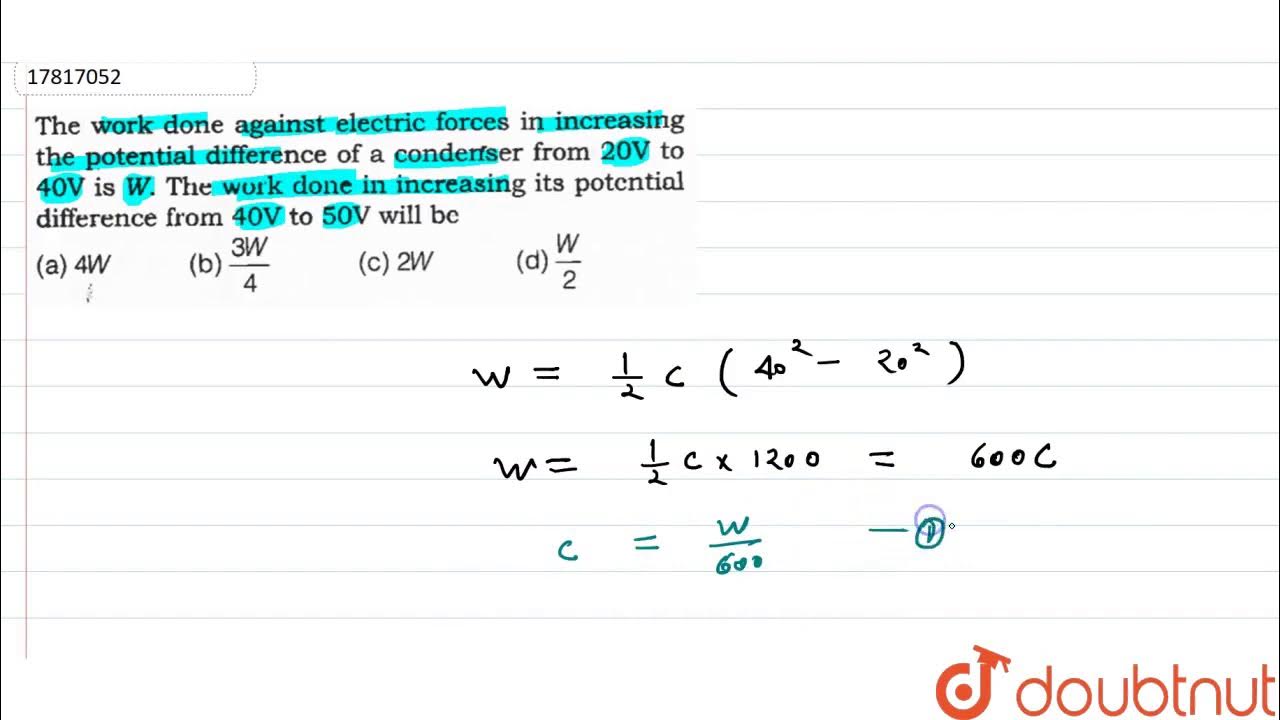 17817052
The work done against electric forces in increasing
the potential difference of a condenser from 20V to
40V is W. The work done in increasing its potential
difference from 40V to 50V will be
(a) 4W (b) 3W/4 (c) 2W (d) W/2
W = 1/2 C (40² - 20²)
W = 1/2 C × 1200 = 600 C
C = W/600 — ①
doubtnut